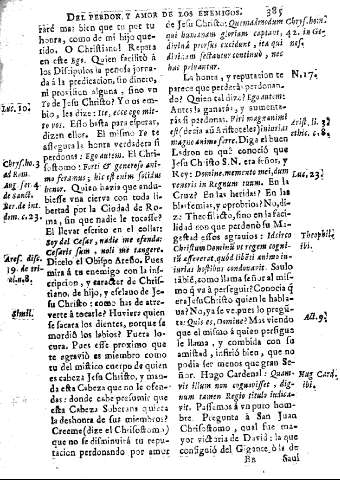 DEL PERDON, Y AMOR DE LOS ENEMIGOS. 385
rarè mas: bien que tu por tu
honra, como de mi hijo que-
rido. O Christiano! Repara
en este Ego. Quien facilitò à
los Discipulos la penosa jorna-
da à la predicacion, sin dinero,
ni provision alguna, sino vn
Yo de Jesu Christo? Yo os em-
bio, les dize: Ite, ecce ego mit-
to vos. Esto basta para esperar,
dizen ellos. El mismo Yo te
assegura la honra verdadera si
perdonas: Ego autem. El Chri-
sostomo:
moseramus; hic essium solidus
benus. Quien havia que andu-
biesse vna cierva con toda li-
bertad por la Ciudad de Ro-
ma, sin que nadie le tocasse?
El llevar escrito en el collar:
Soy del Cesar, nadie me ofenda:
Cæsaris sum, noli me tangere.
Dizelo el Obispo Aresio. Pues
mira à tu enemigo con la ins-
cripcion, y caracter de Chris-
tiano, de hijo, y esclavo de Je-
su Christo: como has de atre-
verte à tocarle? Huviera quien
se sacara los dientes, porque se
mordiò los labios? Fuera lo-
cura. Pues esse proximo que
te agraviò es miembro como
tu del mistico cuerpo de quien
es cabeza Jesu Christo, y man-
da esta Cabeza que no le ofen-
das: donde cabe presumir que
esta Cabeza Soberana quiera
la deshonra de sus miembros?
Creeme (dize el Chrisostomo)
que no se disminuirà tu repu-
tacion perdonando por amor
Luc. 10.
Chrys. ho. 3
ad Rom.
Aug. ser. 4
de sanct.
Bar. de int.
dom. c. 23.
Ares. disc.
19. de tri-
ol. n. 8.
Simil.
de Jesu Christo: Quemadmodum
qui humanam gloriam captant,
divina prorsus excidunt, ita qui
divinam sectantur continuò, nec
hac privantur.
La honra, y reputacion te
parece que perderàs perdonan-
do? Quien tal dize? Ego autem:
Antes la ganaràs, y aumenta-
ràs si perdonas. Viri magnanimi
est (dezia aun Aristoteles) iniurias
magno animo ferre. Diga el buen
Ladron en què conociò que
Jesu Christo S. N. era señor, y
Rey: Domine, memento mei, dum
veneris in Regnum tuum. En la
Cruz? En las heridas? En las
blasfemias, y oprobrios? No, di-
ze Theofilacto, sino en la faci-
lidad con que perdonò su Ma-
gestad essos agravios: Idcirco
Christum Dominum vt regem cogni-
tum asseverat, quod tibi ti animo in-
iurias hostibus condonaris. Saulo
sabiè, como llama señor al mis-
mo q̃ và à perseguir? Conociò q̃
era Jesu Christo quien le habla-
va? No, ya se ve, pues lo pregũ-
ta: Quis es, Domine? Mas viendo
que el mismo à quien persigue
le llama, y combida con su
amistad, infiriò bien, que no
podia ser menos que gran Se-
ñor. Hugo Cardenal: Quam-
vis illum non cognovisset, dig-
num tamen Regio titulo indica-
vit. Passemos à vn puro hom-
bre. Pregunta à San Juan
Chrisostomo, qual fue ma-
yor victoria de David: la que
consiguiò del Gigante, ò la de
Bb Saul
Chrys. hom.
42. in Ge-
N. 17.
Arist. li.
ethic. c. 8.
Luc. 23.
Theophil.
ibi.
Act. 9.
Hug Card.
ibi.